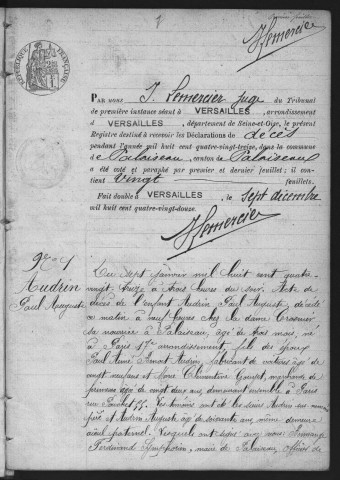 1
Premier feuillet
J Lemercier
RÉPUBLIQUE FRANÇAISE
PAR NOUS J. Lemercier Juge du Tribunal
de première instance séant à VERSAILLES, arrondissement
d VERSAILLES, département de Seine-et-Oise, le présent
Registre destiné à recevoir les Déclarations de décès
pendant l'année mil huit cent quatre-vingt-treize, dans la commune
de Palaiseau, canton de Palaiseau
a été coté et paraphé par premier et dernier feuillet; il con-
tient Vingt feuillets.
Fait double à VERSAILLES, le sept décembre
mil huit cent quatre-vingt-douze.
J Lemercier
No 1
Audrin
Paul Auguste
Du Sept janvier mil huit cent quatre-
vingt treize à trois heures du soir. Acte de
décès de l'enfant Audrin Paul Auguste décédé
ce matin à neuf heures chez la dame
sa nourrice à Palaiseau, âgé de trois mois, né
à Paris arrondissement, fils des époux
Paul Audrin, fabricant de voitures âgé de
vingt et un ans et Marie Clémentine
âgée de vingt deux ans, demeurant ensemble à Paris
rue 55. Les témoins ont été les sieurs Audrin
père et Audrin Auguste âgé de soixante ans, même demeure
aïeul paternel. Lesquels ont signé avec nous
Ferdinand Symphorien, maire de Palaiseau, officier de